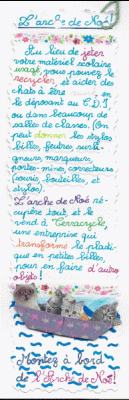 L'arche de Noé
Au lieu de jeter
votre matériel scolaire
usagé, vous pouvez le
recycler, et aider des
chats à être
en
le déposant au C.D.I
ou dans beaucoup de
salles de classes. (On
peut donner les stylos
billes, feutres, surli-
gneurs, marqueurs,
portes-mines, correcteurs
(souris, bouteilles, et
stylos).
L'arche de Noé ré-
cupère tout, et le
vend à Terracycle,
une entreprise qui
transforme le plasti-
que en petites billes,
pour en faire d'autre
objets!
Montez à bord
de l'Arche de Noé!